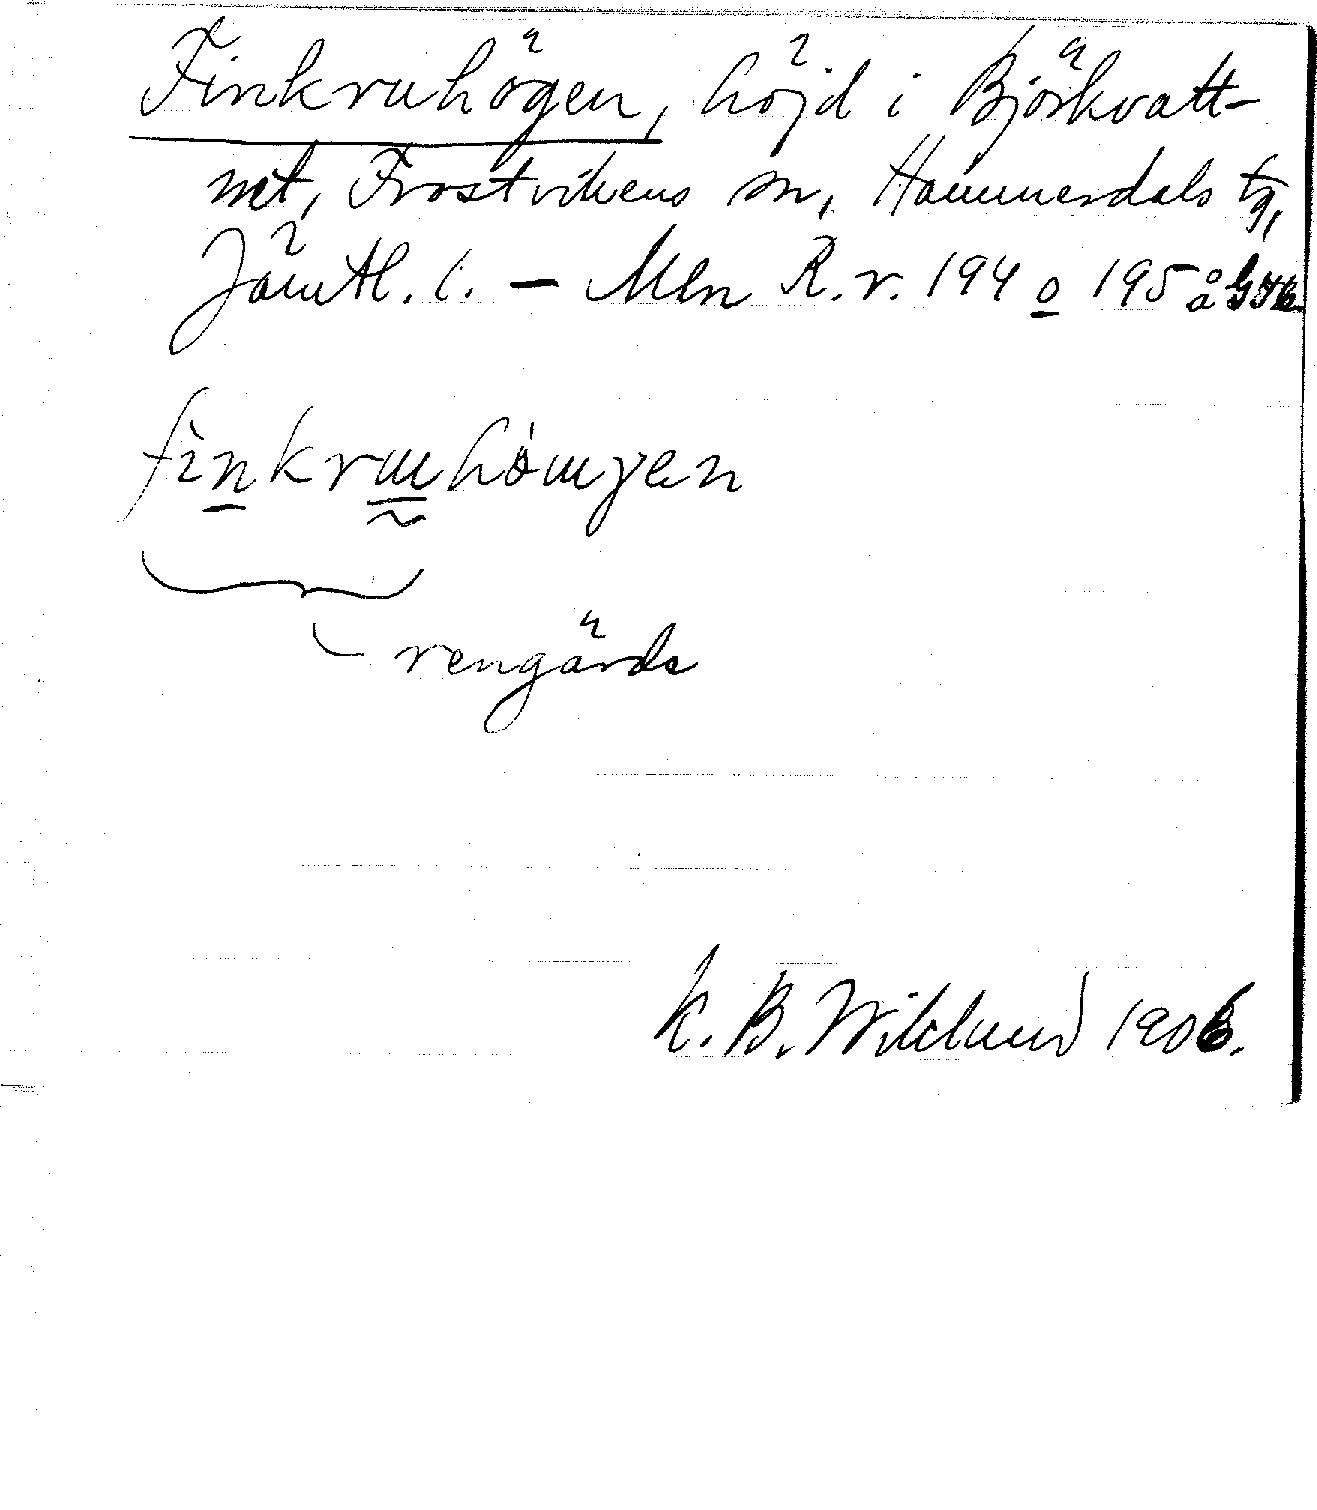 Finkruhögen, höjd i Björkvatt-
net, Frostvikens sn, Hammerdals tg,
Jämtl. l. – Mln R.r. 194 o 195 å GSK
finkruhögen
rengärde
K. B. Wiklund 1906.